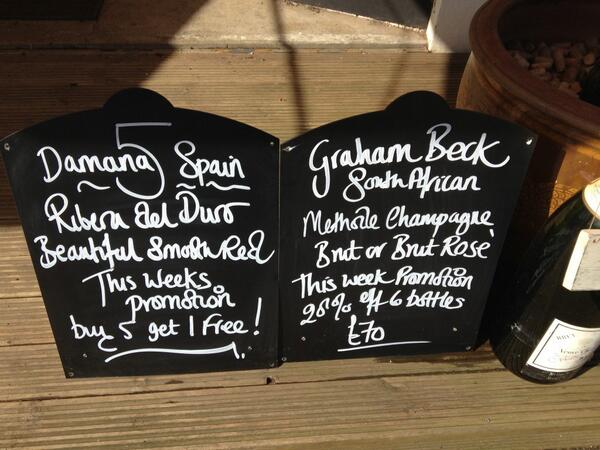 Damana 5 Spain
Ribera del Duro
Beautiful Smooth Red
This Weeks
Promotion
buy 5 get 1 Free!
Graham Beck
South African
Methode Champagne
Brut or Brut Rosè
This week Promotion
20% off 6 bottles
£70